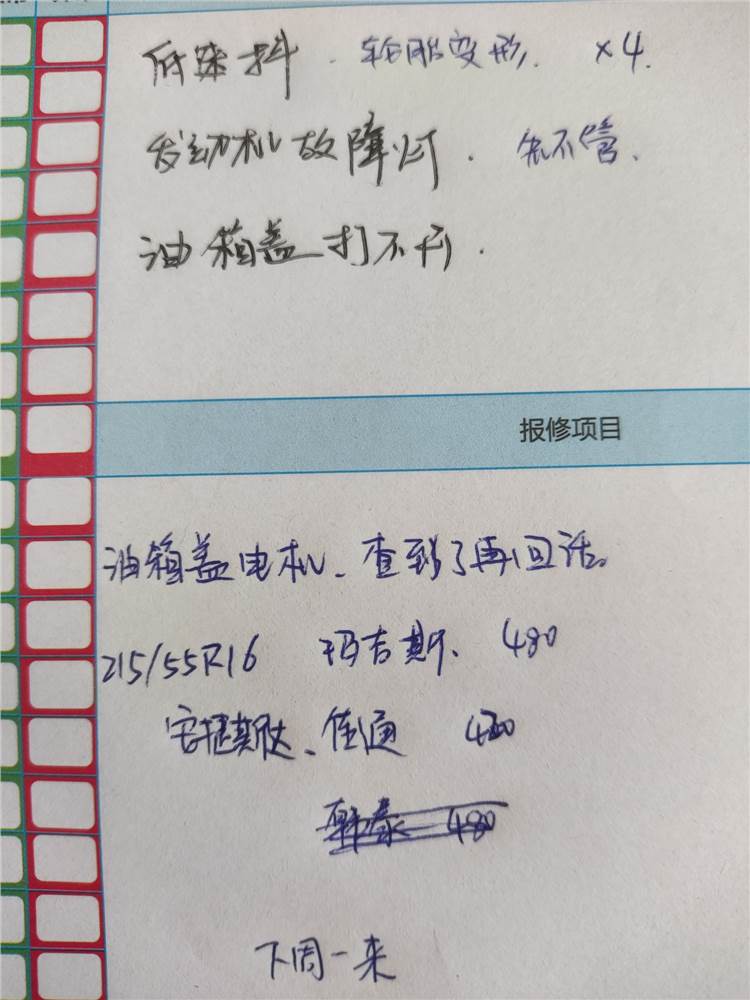 做保养. 轮胎变形. ×4.
发动机故障灯. 先不管.
油箱盖打不开.
报修项目
油箱盖电机、查到了再回话。
215/55R16 玛吉斯. 480
佳通 420
韩泰 480
下周一来